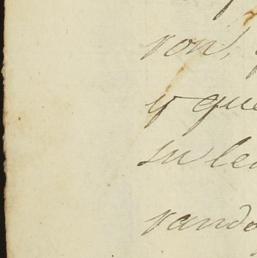 ron,
y que
su le
rando